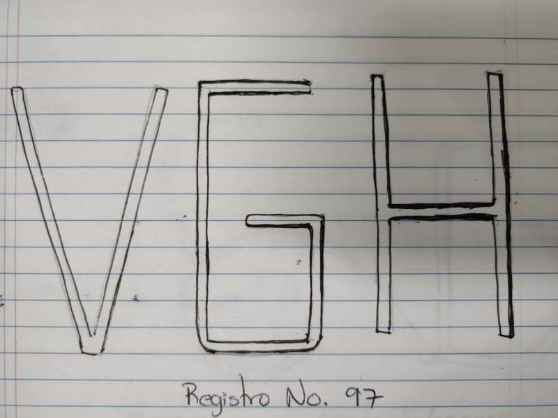 VGH
Registro No. 97